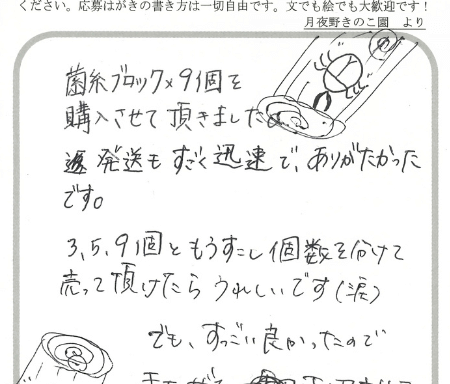 ください。応募はがきの書き方は一切自由です。文でも絵でも大歓迎です！
月夜野きのこ園　より
菌糸ブロック×9個を
購入させて頂きました
発送もすごく迅速で、ありがたかった
です。
3,5,9個ともうすこし個数を分けて
売って頂けたらうれしいです(涙)
でも、すっごい良かったので